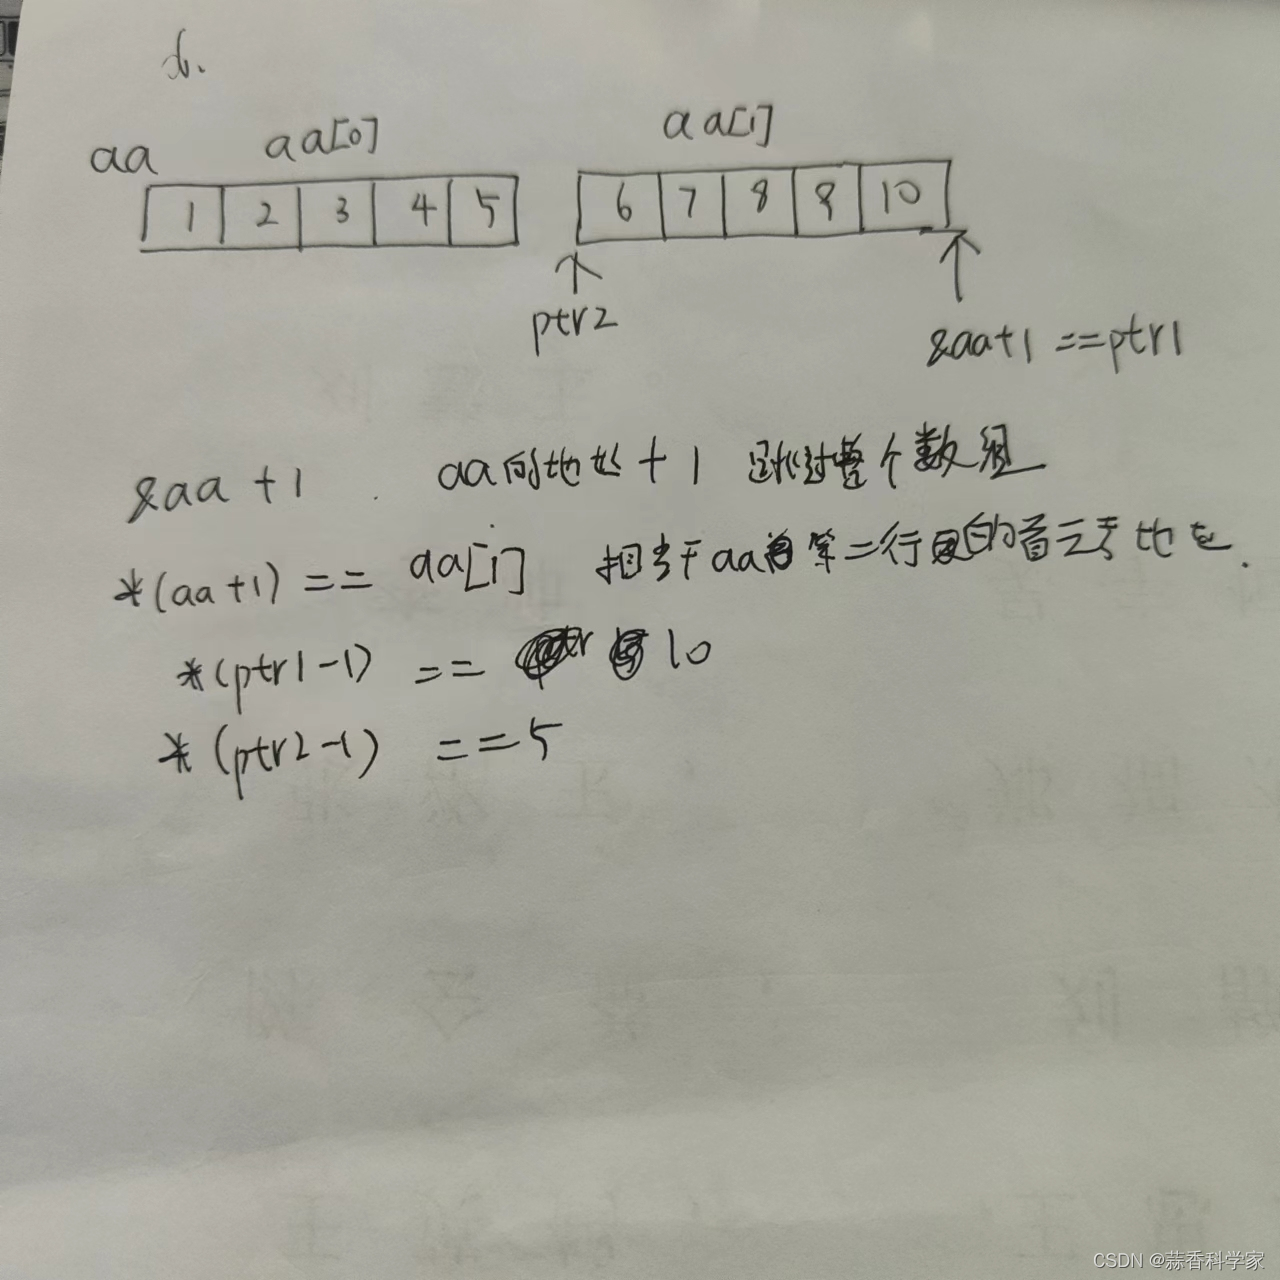 6.
aa aa[0] aa[1]
1 2 3 4 5 6 7 8 9 10
ptr2
&aa+1 ==ptr1
&aa +1 aa的地址+1 跳过整个数组
*(aa+1) == aa[1] 相当于aa第二行的首元素地址.
*(ptr1-1) == 10
*(ptr2-1) ==5
CSDN @蒜香科学家